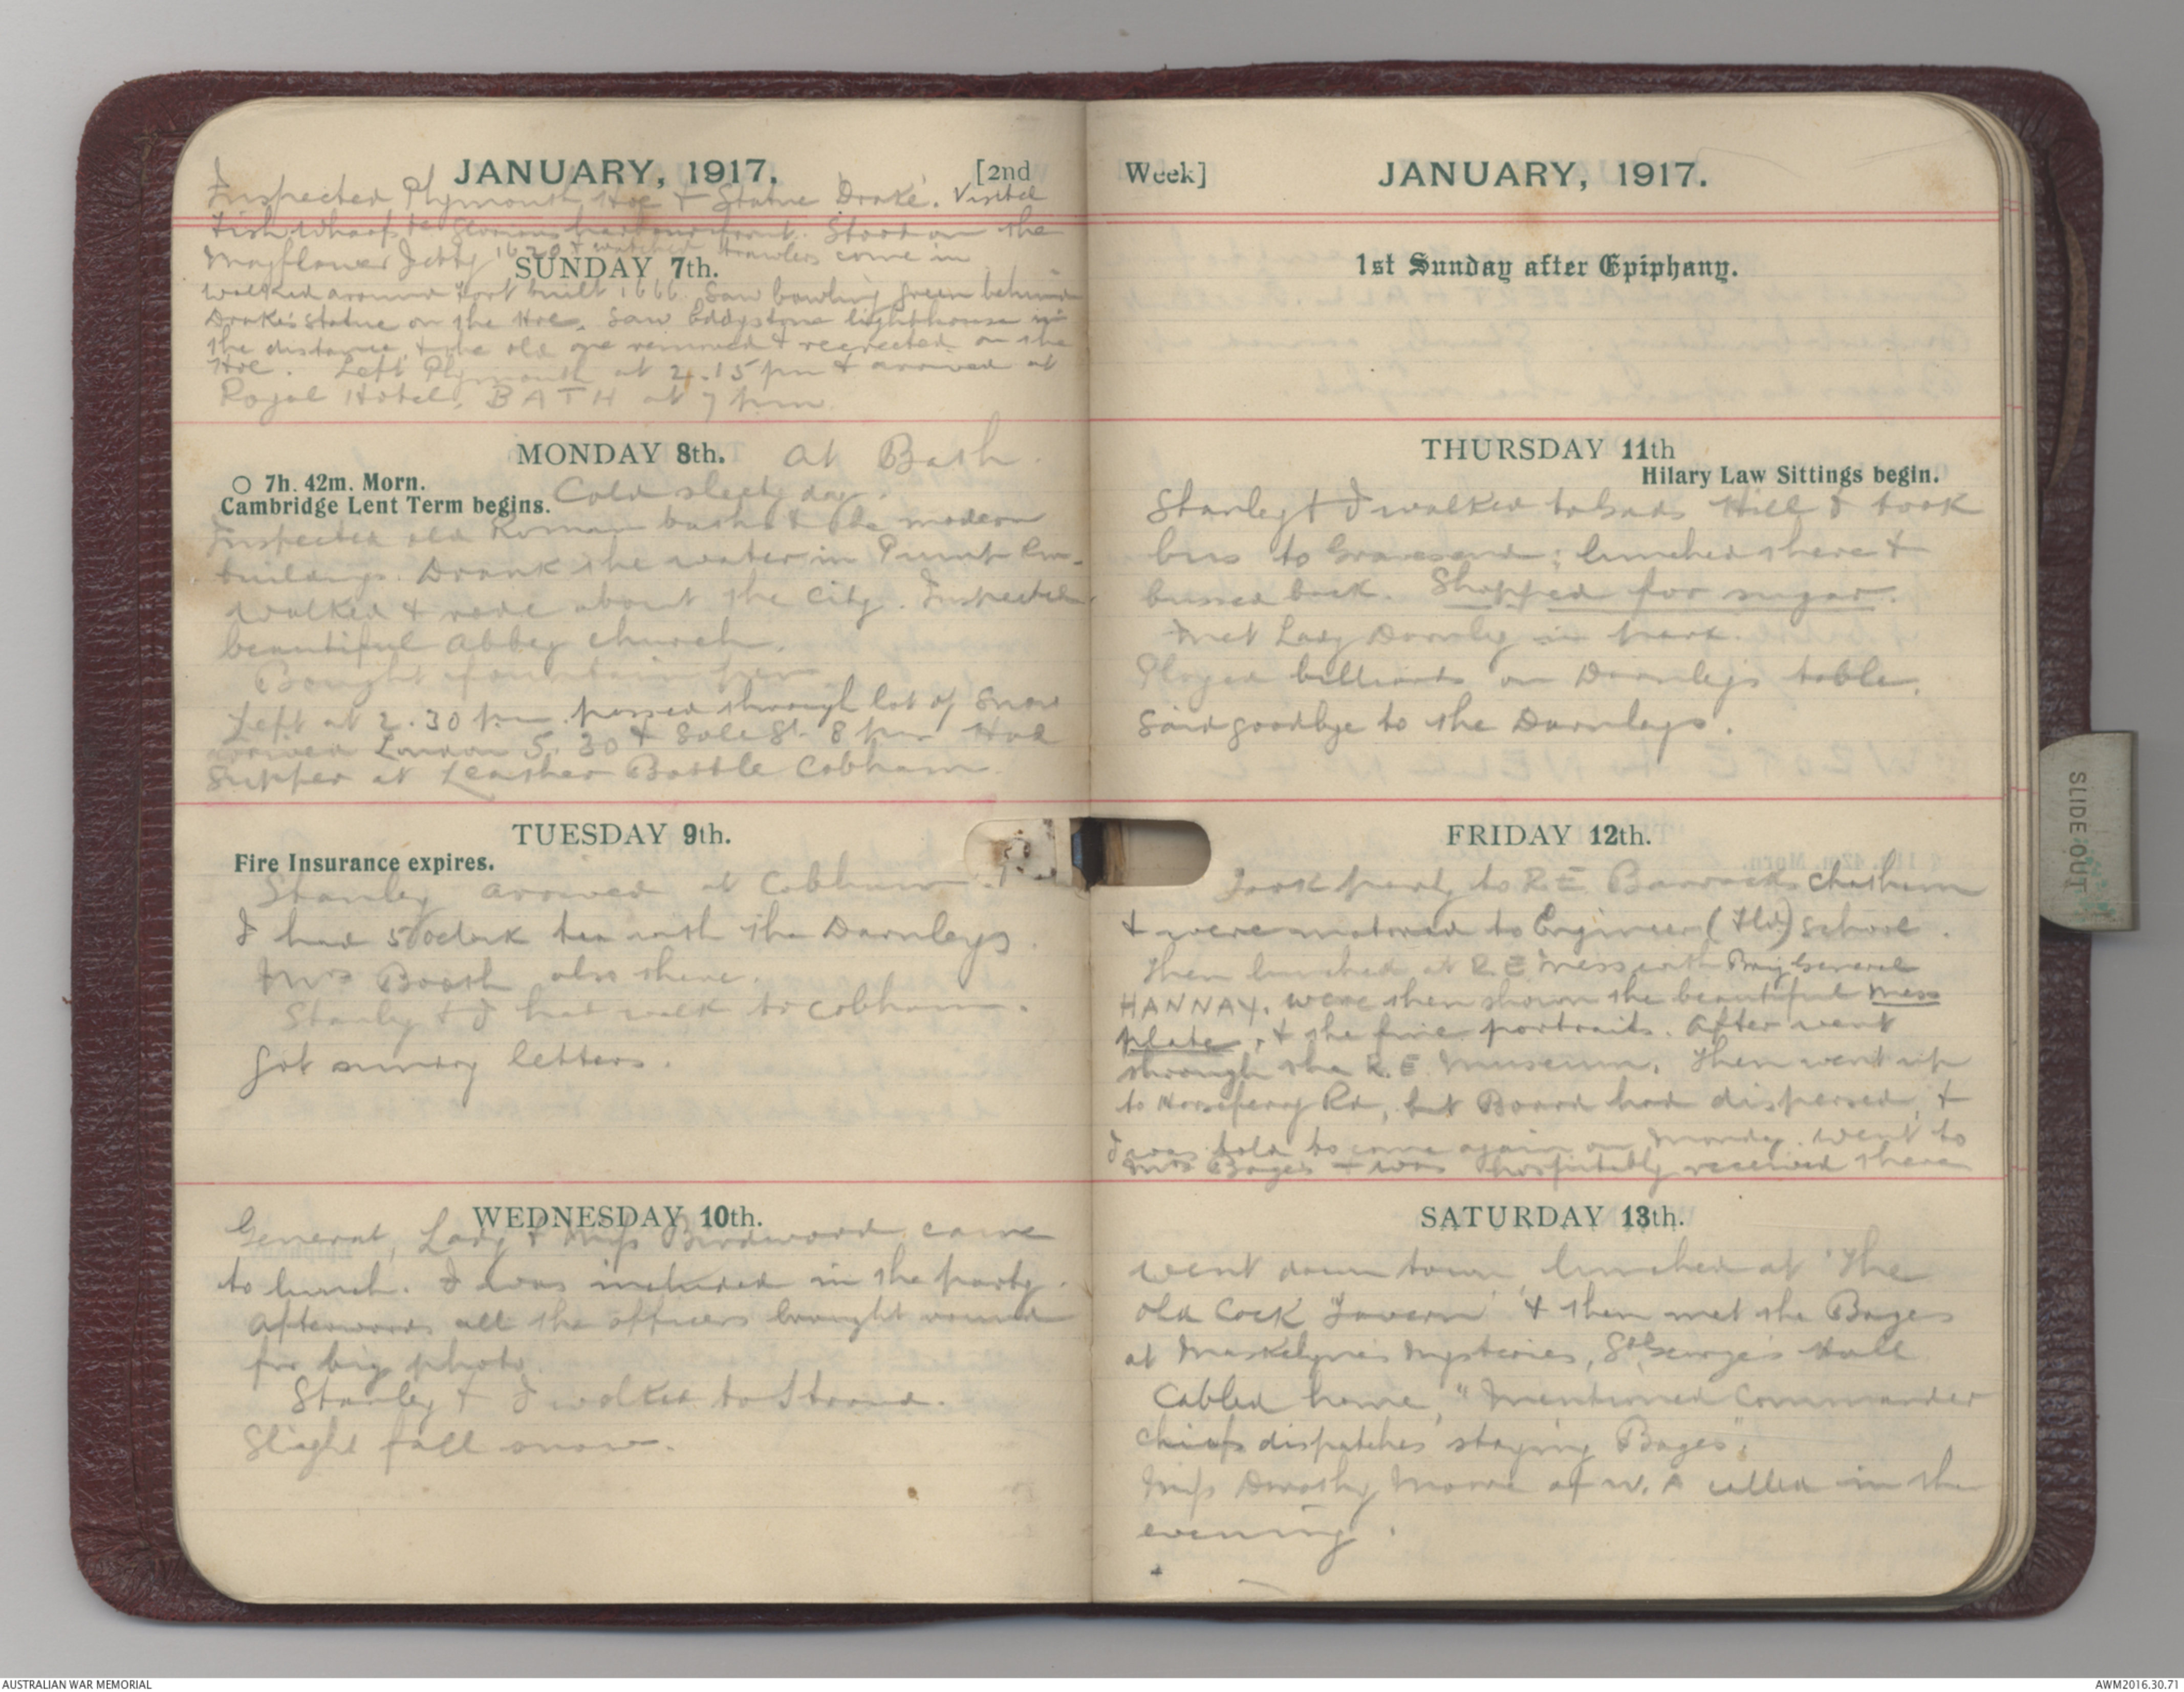 JANUARY, 1917. [2nd
Inspected Plymouth Hoe & Statue 'Drake'. Visited
Fish Wharf & Glorious harbour front. Stood on the
Mayflower Jetty 1620 & watched trawlers come in
SUNDAY 7th.
walked around Fort built 1666. Saw bowling green behind
Drake's statue on the Hoe. Saw Eddystone lighthouse in
the distance, & the old one removed & reerected on the
Hoe. Left Plymouth at 2.15 pm & arrived at
Royal Hotel, BATH at 7 pm.
MONDAY 8th. At Bath.
○ 7h. 42m. Morn.
Cambridge Lent Term begins. Cold sleety day.
Inspected old Roman baths & the modern
buildings. Drank the water in Pump Rm.
Walked & rode about the city. Inspected
beautiful Abbey church.
Bought fountain pen.
Left at 2.30 pm passed through lot of snow
arrived London 5.30 & Sole St. 8 pm Had
Supper at Leather Bottle Cobham.
TUESDAY 9th.
Fire Insurance expires.
Stanley arrived at Cobham.
I had 5 oclock tea with the Darnleys.
Mrs Booth also there.
Stanley & I had walk to Cobham.
Got sundry letters.
WEDNESDAY 10th.
General, Lady & Miss Birdwood came
to lunch. I was included in the party.
Afterwards all the officers brought round
for big photo.
Stanley & I walked to Strood.
Slight fall snow.
Week] JANUARY, 1917.
1st Sunday after Epiphany.
THURSDAY 11th
Hilary Law Sittings begin.
Stanley & I walked to Hill & took
bus to Gravesend; lunched there &
bussed back. Shopped for sugar.
Met Lady Darnley in park.
Played billiards on Darnley's table.
Said goodbye to the Darnleys.
FRIDAY 12th.
Took party to R.E Barracks Chatham
& were motored to Engineer (Fld) School.
Then lunched at R.E Mess with Brig General
HANNAY. Were then shown the beautiful mess
plate, & the fine portraits. After went
through the R.E. Museum. Then went up
to Horseferry Rd, but Board had dispersed, &
I was told to come again on Monday. Went to
Mrs Bages & was hospitably received there
SATURDAY 13th.
Went down town, lunched at 'The
Old Cock Tavern' & then met the Bages
at Maskelyne's Mysteries, St George's Hall
Cabled home, "Mentioned Commander
Chiefs dispatches staying Bages".
Miss Dorothy Moore of W.A called in the
evening.
SLIDE OUT
AUSTRALIAN WAR MEMORIAL
AWM2016.30.71